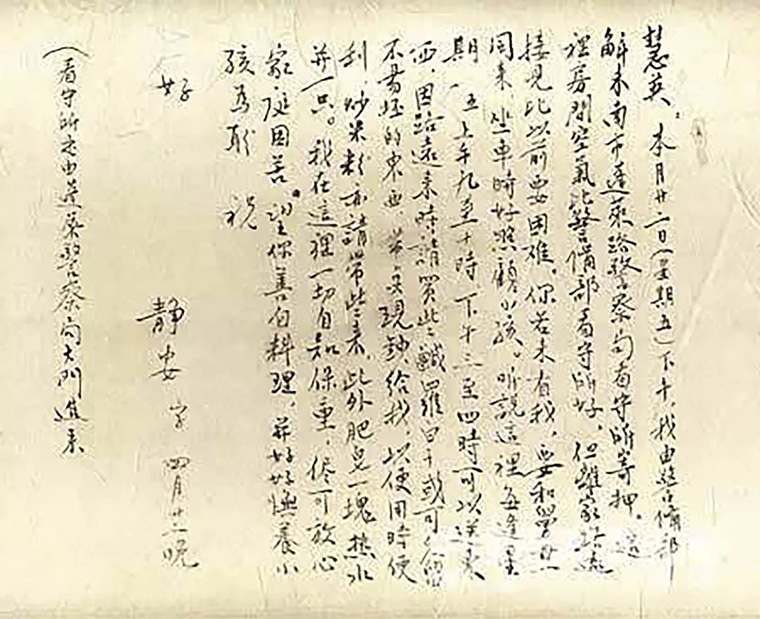 慧英：本月廿二日（星期五）下午，我由警備部
解来南市蓬萊路警察局看守所寄押，這
裡房間空氣比警備部看守所好，但離家路遠
接見比以前要困難，你若来看我，要和舅母
同来，坐車時好照顧小孩。听說這裡每逢星
期一、五上午九至十時，下午三至四時可以送東
西，因路遠来時請買些鹹羅白干或可久留
不易坏的東西，帶点現鈔給我，以便用時便
利，炒米粉亦請帶些来，此外肥皂一塊，热水
瓶一只。我在這裡一切自知保重，侭可放心
家庭困苦。望你善自料理，并好好撫養小
孩為盼 祝
好
靜安字 四月廿二晚
（看守所是由蓬萊警察局大門進来）